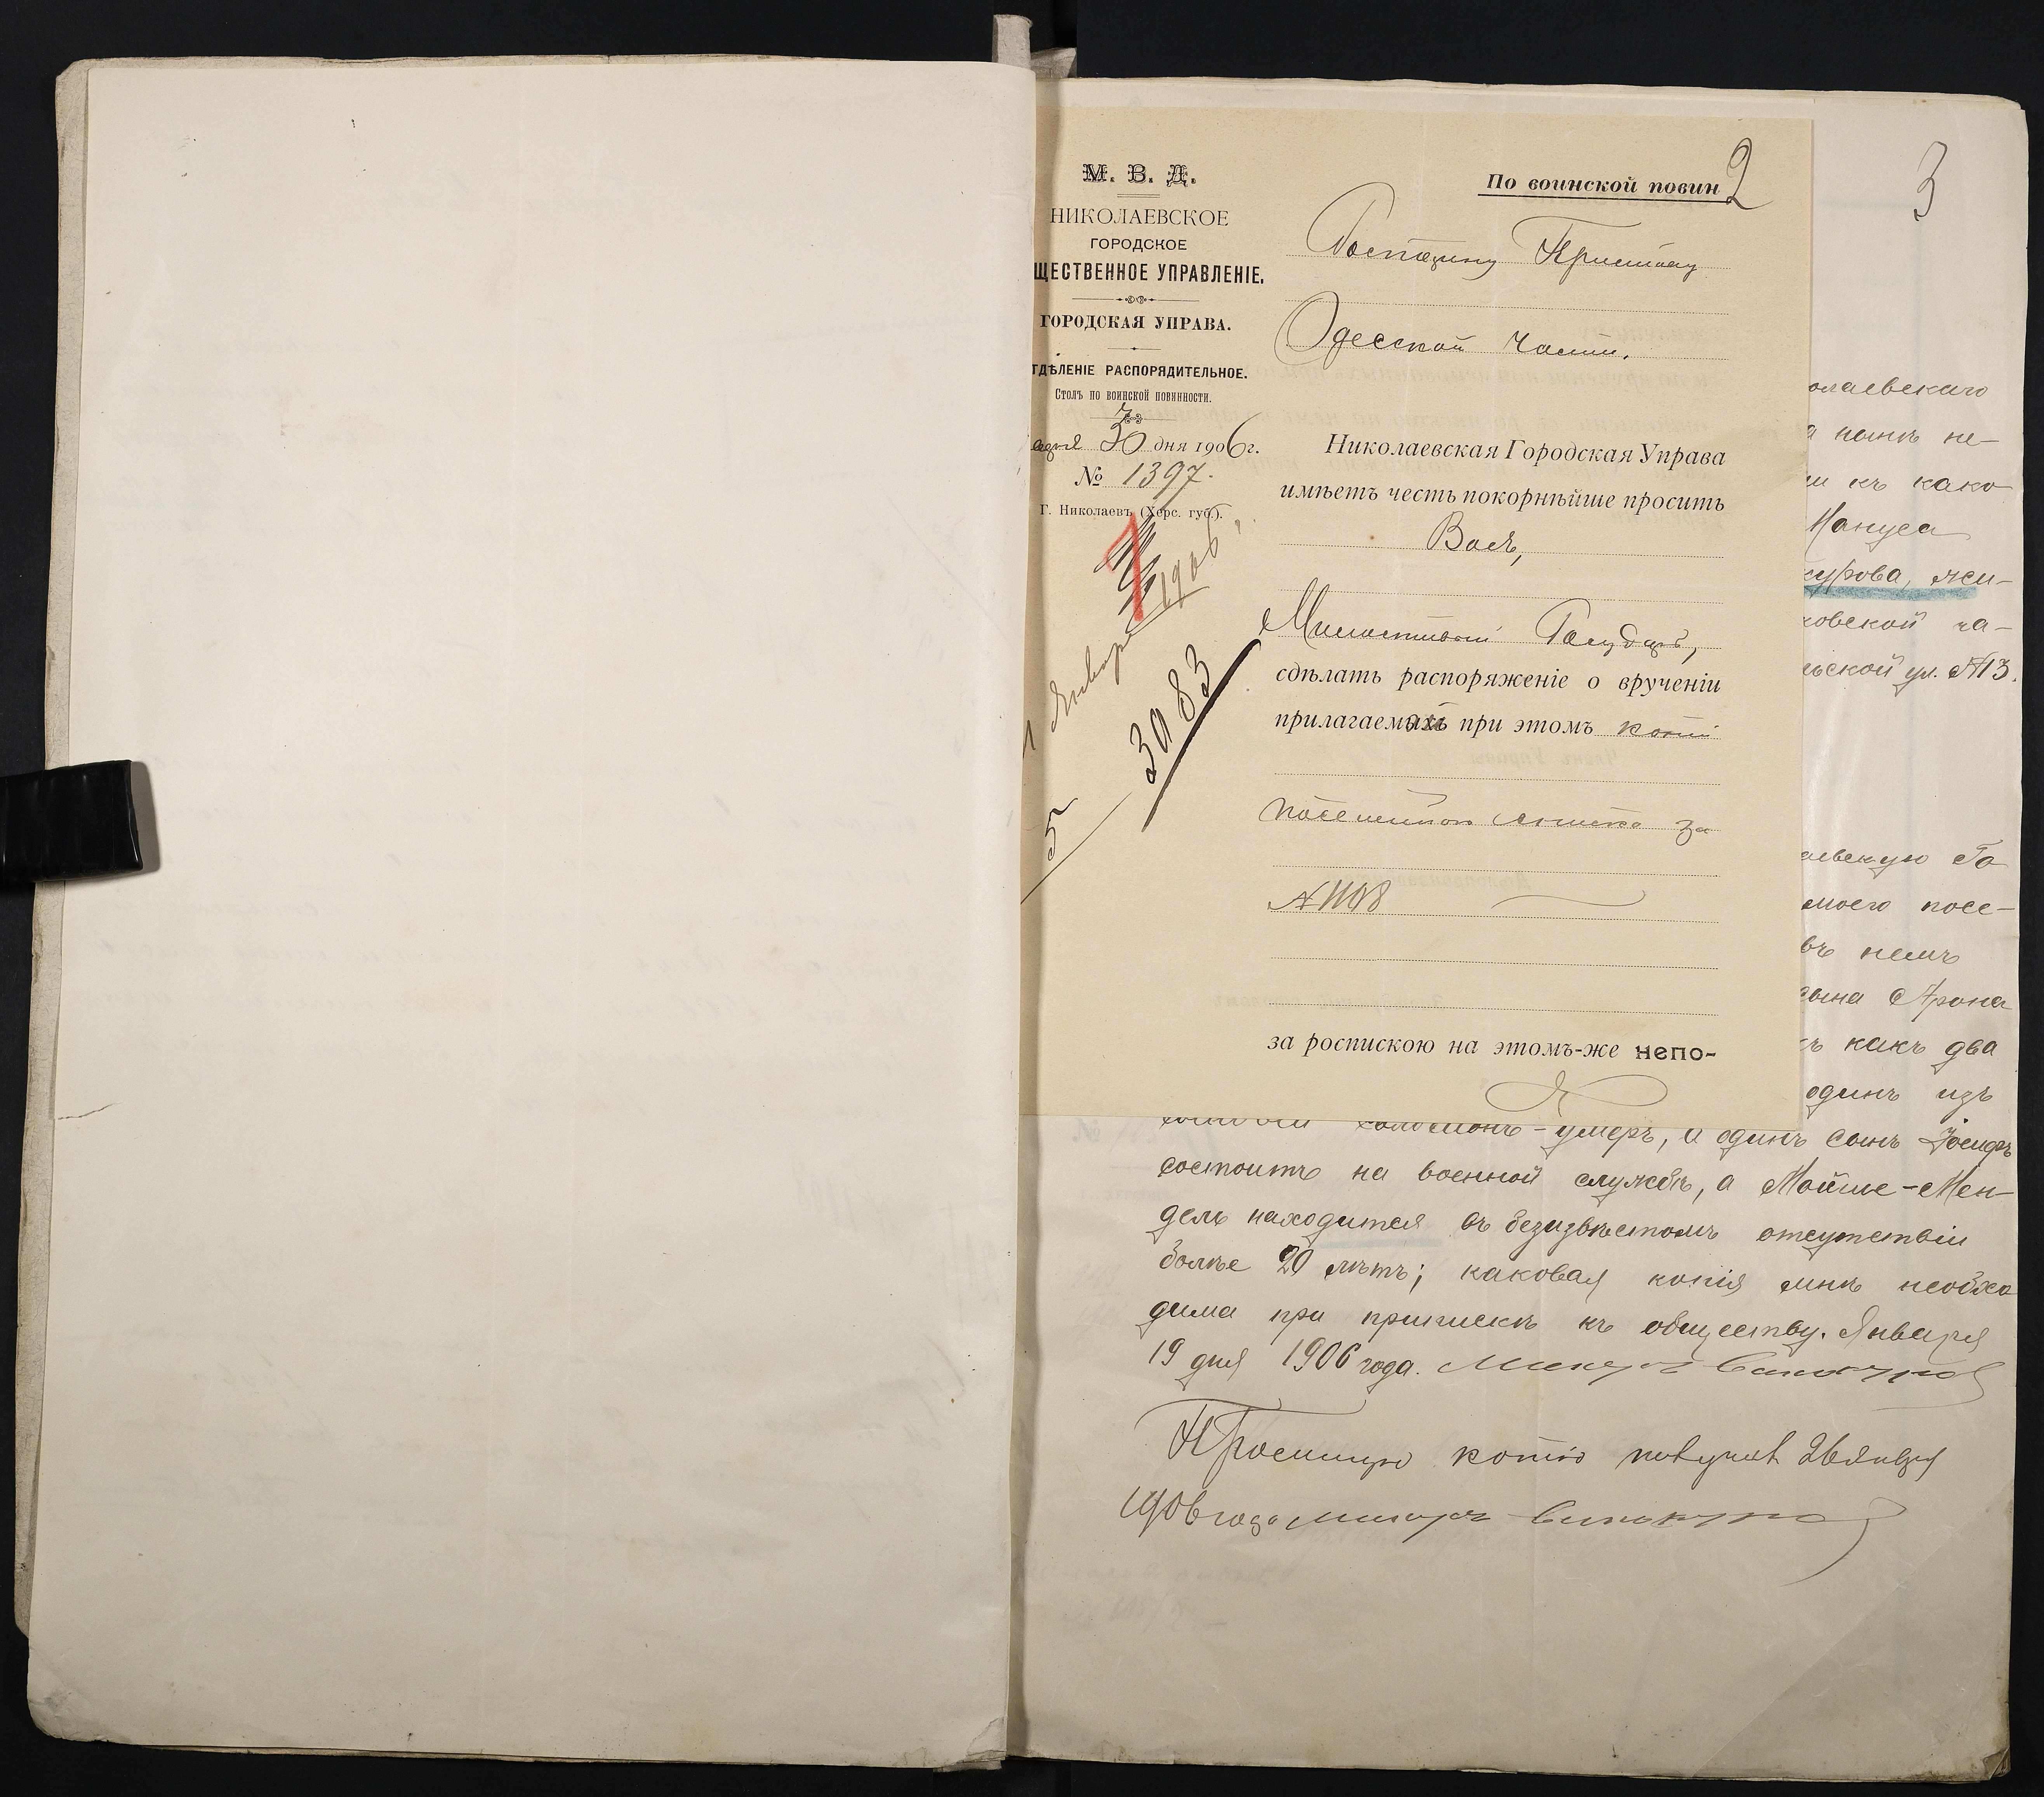 М. В. Д.
НИКОЛАЕВСКОЕ
ГОРОДСКОЕ
ЩЕСТВЕННОЕ УПРАВЛЕНІЕ.
ГОРОДСКАЯ УПРАВА.
ТДѢЛЕНІЕ РАСПОРЯДИТЕЛЬНОЕ.
Столъ по воинской повинности.
30 дня 1906 г.
№ 1397.
Г. Николаевъ (Херс. губ.).
Января 1906
5 3083
По воинской повин
2
Господину Приставу
Одесской части.
Николаевская Городская Управа
имѣетъ честь покорнѣйше просить
Васъ,
Милостивый Государь,
сдѣлать распоряженіе о врученіи
прилагаемой при этомъ копіи
посемейнаго списка за
№ 1108
за роспискою на этомъ-же непо-
3
олаевскаго
а нынѣ не-
ли къ како
Мануса
курова, жи-
ковской ча-
ьской ул. №13.
аевскую Го
моего посе-
въ немъ
сына Арона
къ какъ два
одинъ изъ
умеръ, а одинъ сынъ Іосифъ
состоитъ на военной службѣ, а Мойше-Мен-
дель находится въ безизвѣстномъ отсутствіи
болѣе 20 лѣтъ; каковая копія мнѣ необхо
дима при припискѣ къ обществу. Января
19 дня 1906 года.
Просимую копію получилъ 26 Января
1906 года